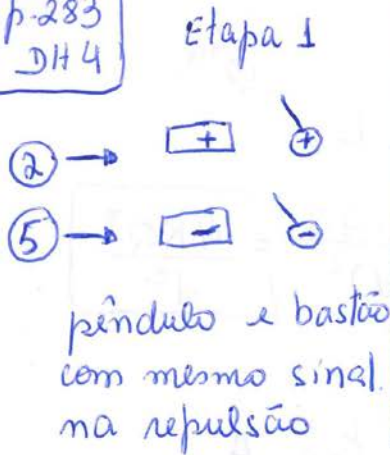 p.283
DH4
Etapa 1
2 → + +
5 → - -
pêndulo e bastão
com mesmo sinal.
na repulsão